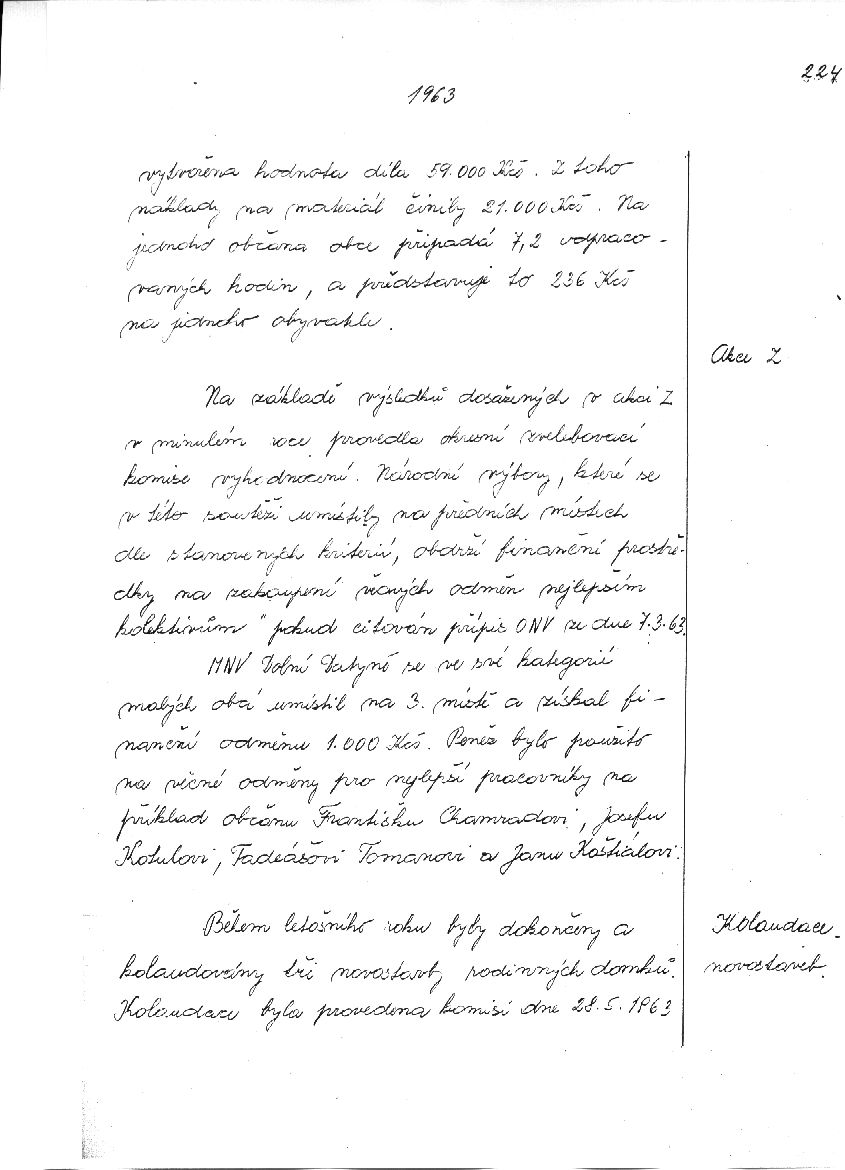 224
1963
vytvořena hodnota díla 59.000 Kčs. Z toho
náklady na materiál činily 21.000 Kčs. Na
jednoho občana obce připadá 7,2 odpraco-
vaných hodin, a představuje to 236 Kčs
na jednoho obyvatele.
Akce Z
Na základě výsledků dosažených v akci Z
v minulém roce provedla okresní zvelebovací
komise vyhodnocení. Národní výbory, které se
v této soutěži umístily na předních místech
dle stanovených kriterií, obdrží finanční prostře-
dky na zakoupení věcných odměn nejlepším
kolektivům" pokud citován přípis ONV ze dne 7.3.63.
MNV Dolní Datyně se ve své kategorii
malých obcí umístil na 3. místě a získal fi-
nanční odměnu 1.000 Kčs. Peněz bylo použito
na věcné odměny pro nejlepší pracovníky na
příklad občanu Františku Chamradovi, Josefu
Kotulovi, Tadeášovi Tomanovi a Janu Košťálovi.
Během letošního roku byly dokončeny a
kolaudovány tři novostavby rodinných domků.
Kolaudace byla provedena komisí dne 28.5.1963
Kolaudace
novostaveb.